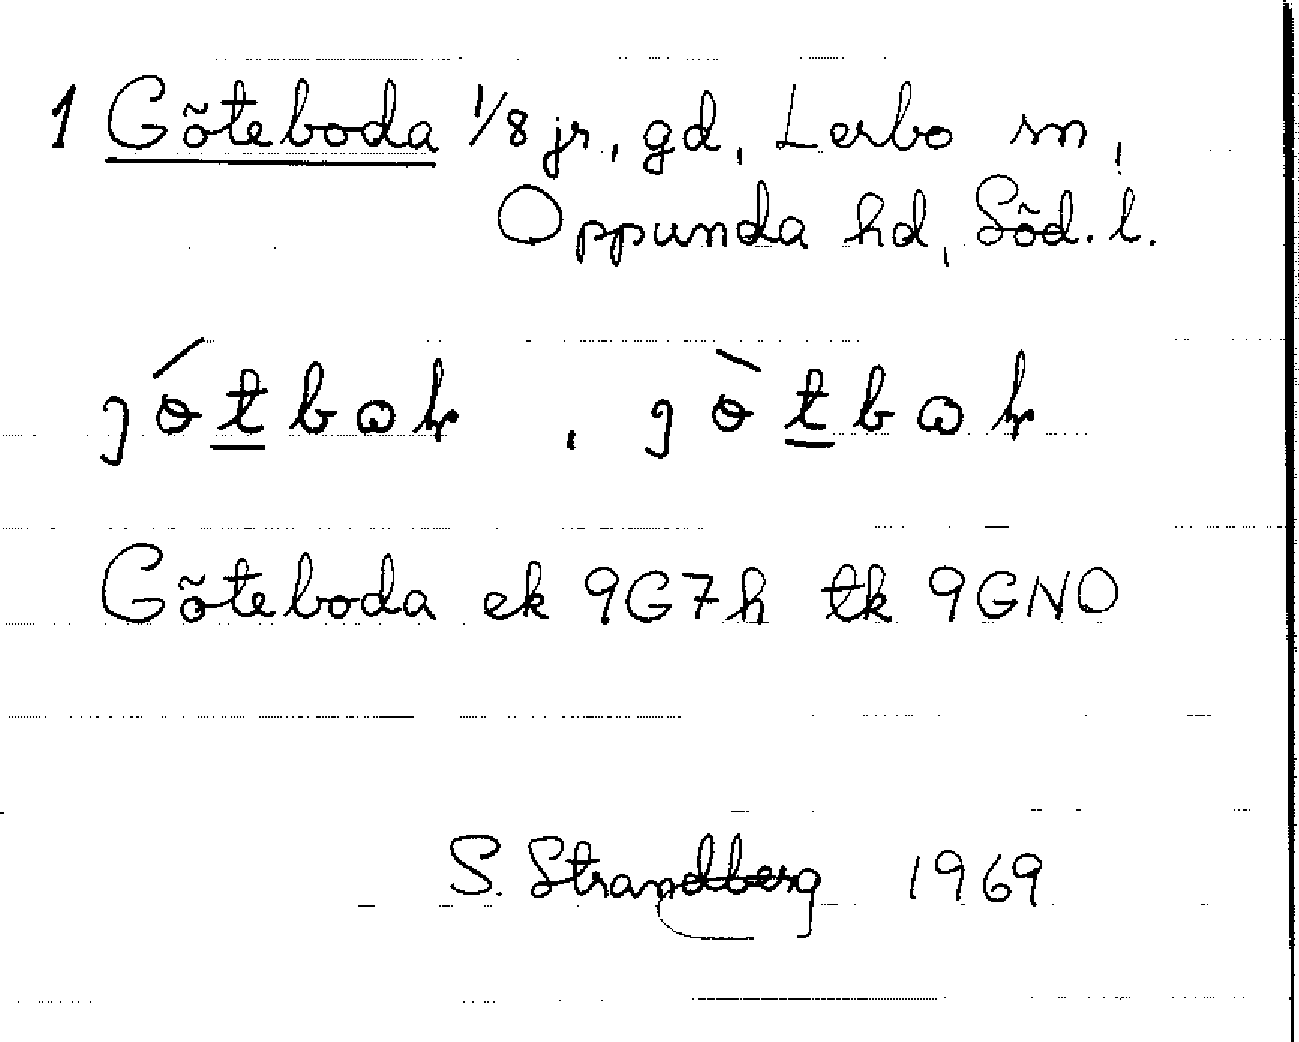 1 Göteboda 1/8 jr, gd, Lerbo sn,
Oppunda hd, Söd. l.
Göteboda ek 9G7h tk 9GNO
S. Strandberg 1969